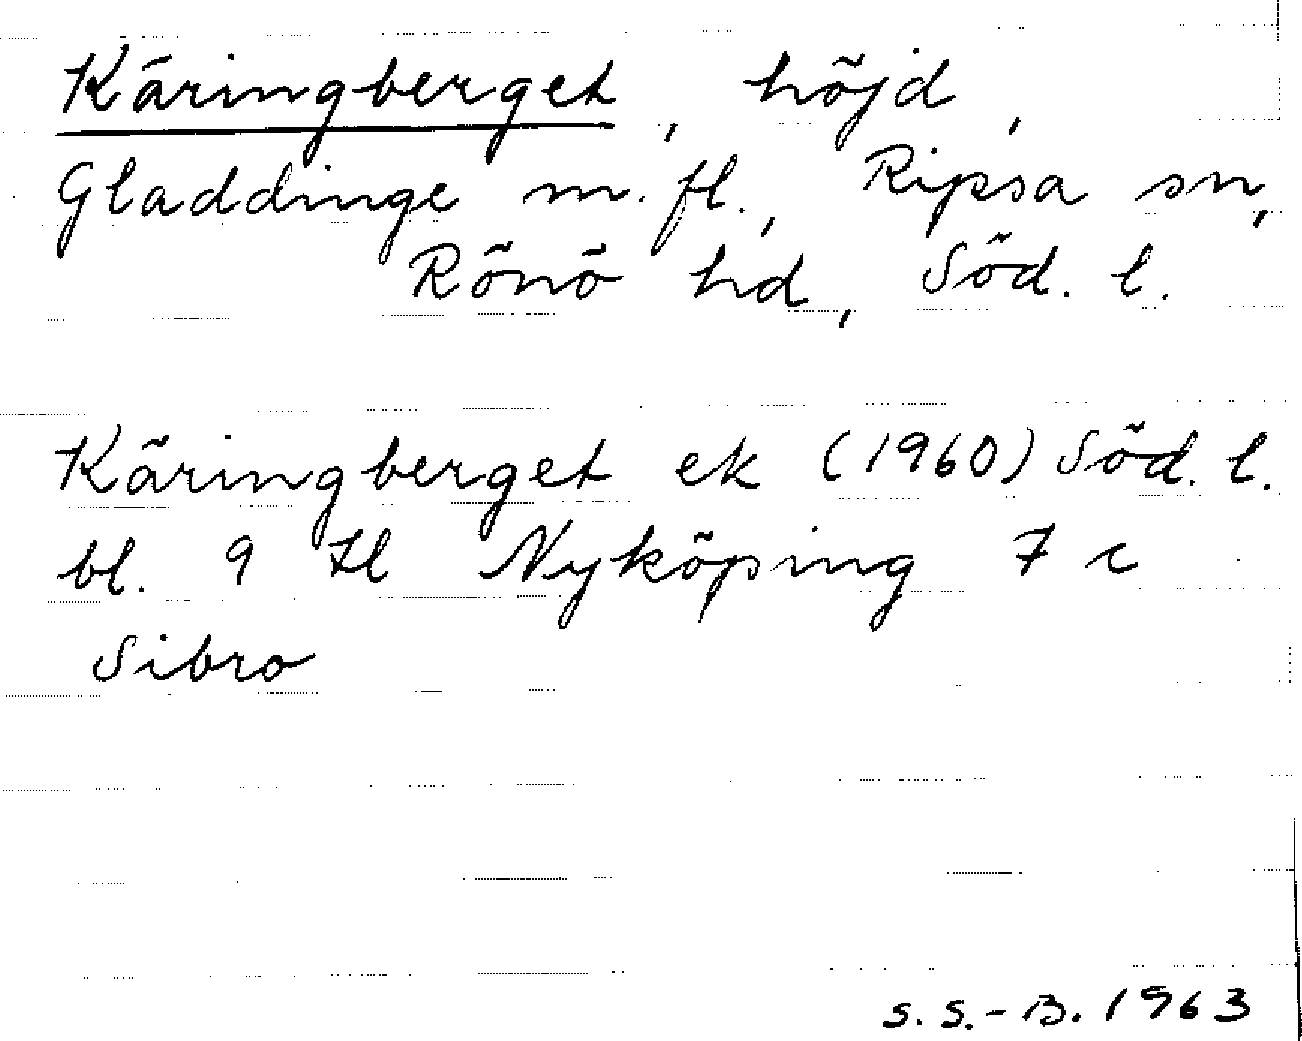 Käringberget, höjd,
Gladdinge m.fl., Ripsa sn,
Rönö hd, Söd. l.
Käringberget ek (1960) Söd. l.
bl. 9 H Nyköping 7 c
Sibro
S. S.-B. 1963